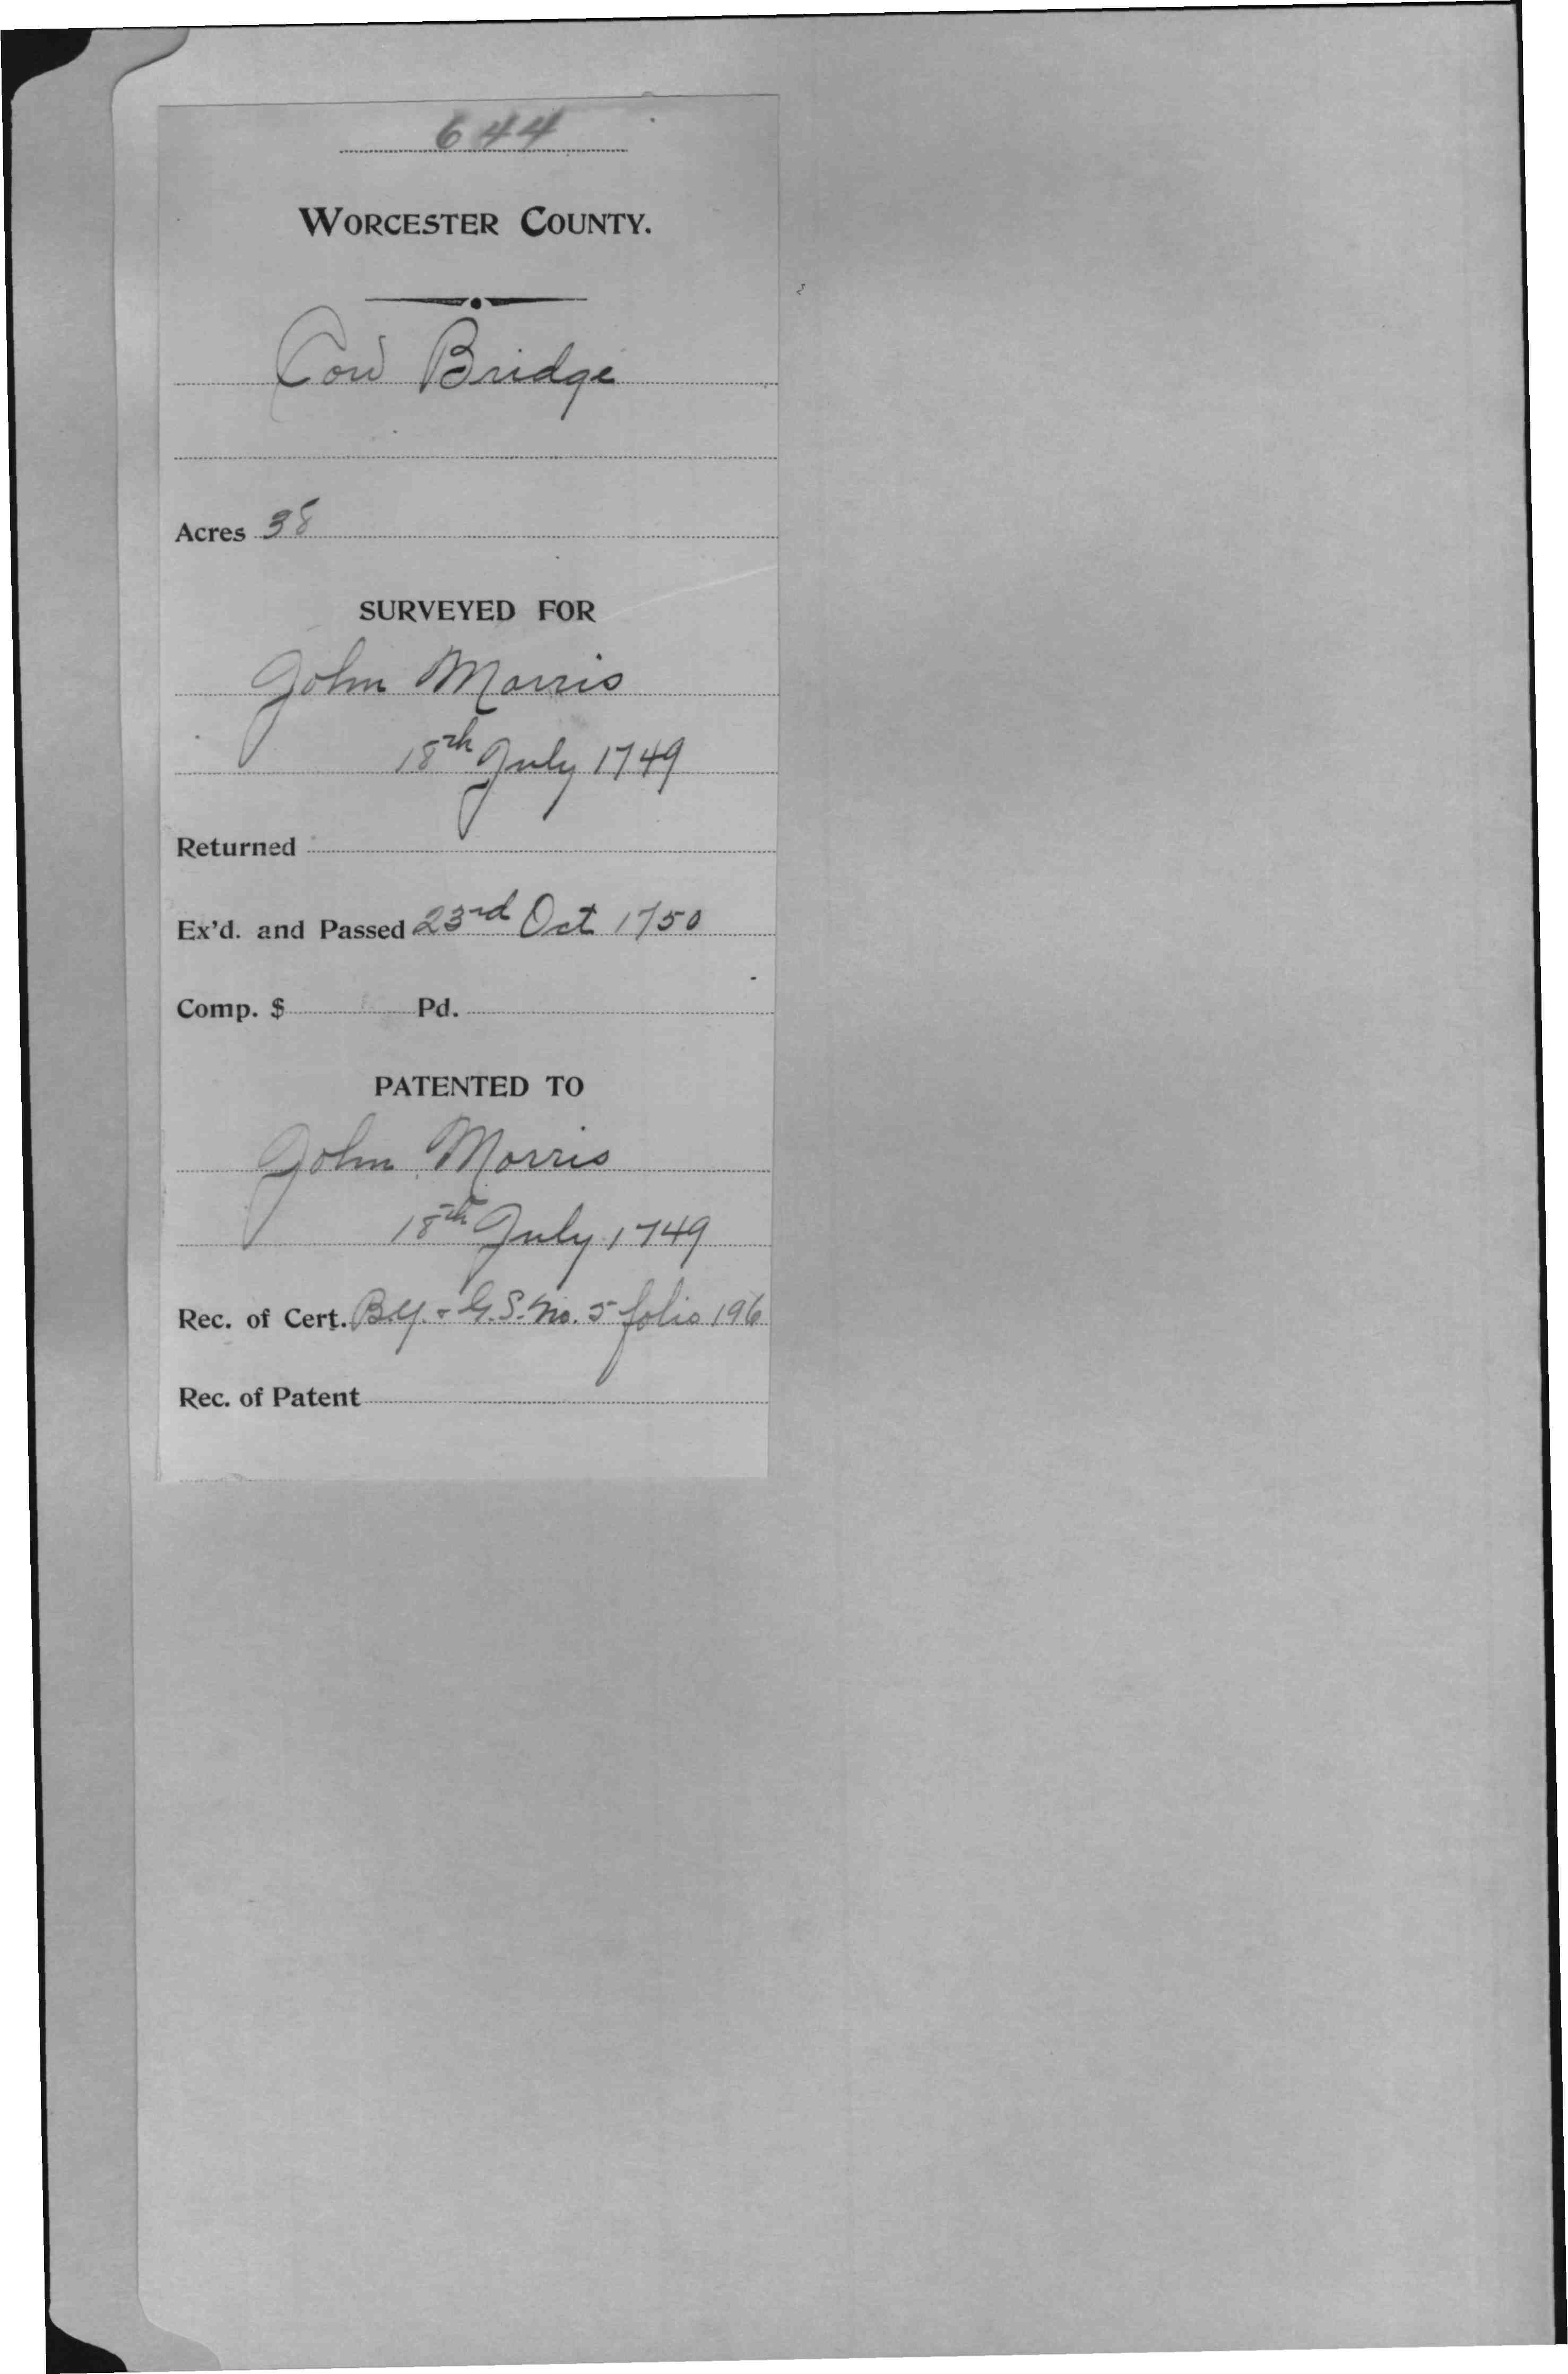 644
WORCESTER COUNTY.
Cow Bridge
Acres 38
SURVEYED FOR
John Morris
18th July 1749
Returned
Ex'd. and Passed 23rd Oct 1750
Comp. $ Pd.
PATENTED TO
John Morris
18th July 1749
Rec. of Cert. B.Y. & G.S. No. 5 folio 196
Rec. of Patent